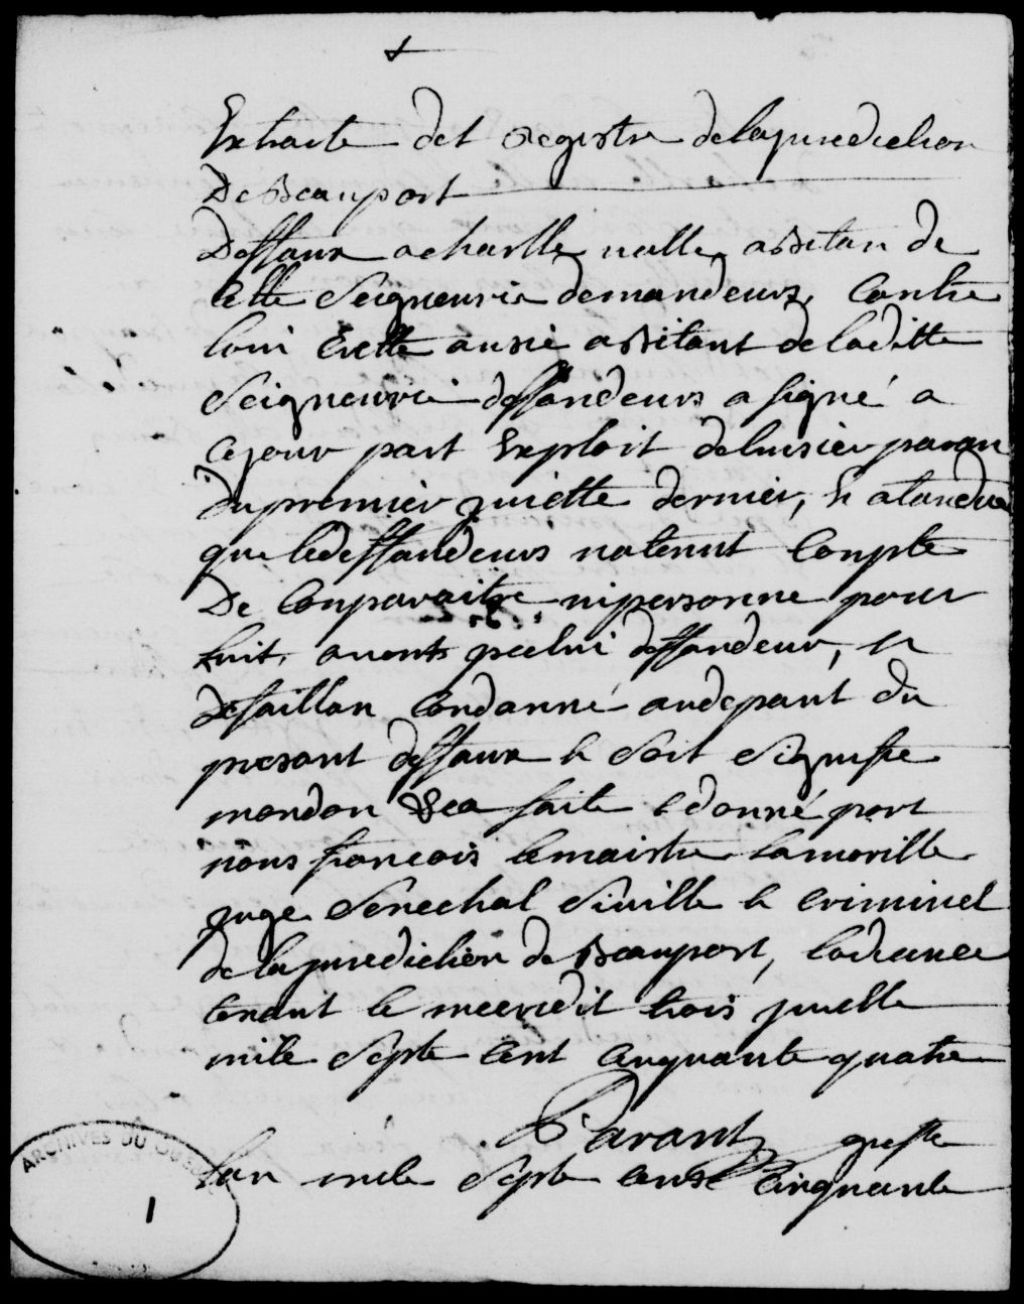 Extraite det Registre delajurediction
De Beauport
Deffaux a charlle valle abitan de
cette Seigneurie demandeur, Contre
loui crette ausie abitant de laditte
Seigneurie deffandeur asigné a
cejour part Exploit deluisier paran
du premier juiette dernier, E atandue
que ledeffandeur natenut Conpte
De Conparaitre nipersonne pour
luit, avonts jcelui deffandeur, et
defaillan Condanné audepant du
presant deffaux e Soit Signifie
mandon &ca faite e donné part
nous francois lemaistre lamorille
juge Senechal Siville e criminel
delajuredictien de Beauport, ladiance
tenant le meercdit trois juuelle
mile Septe Cent Cinquante quatre
Parant greffie
Lan mile Septe Cens Cinquante
ARCHIVES DU QUÉBEC
1